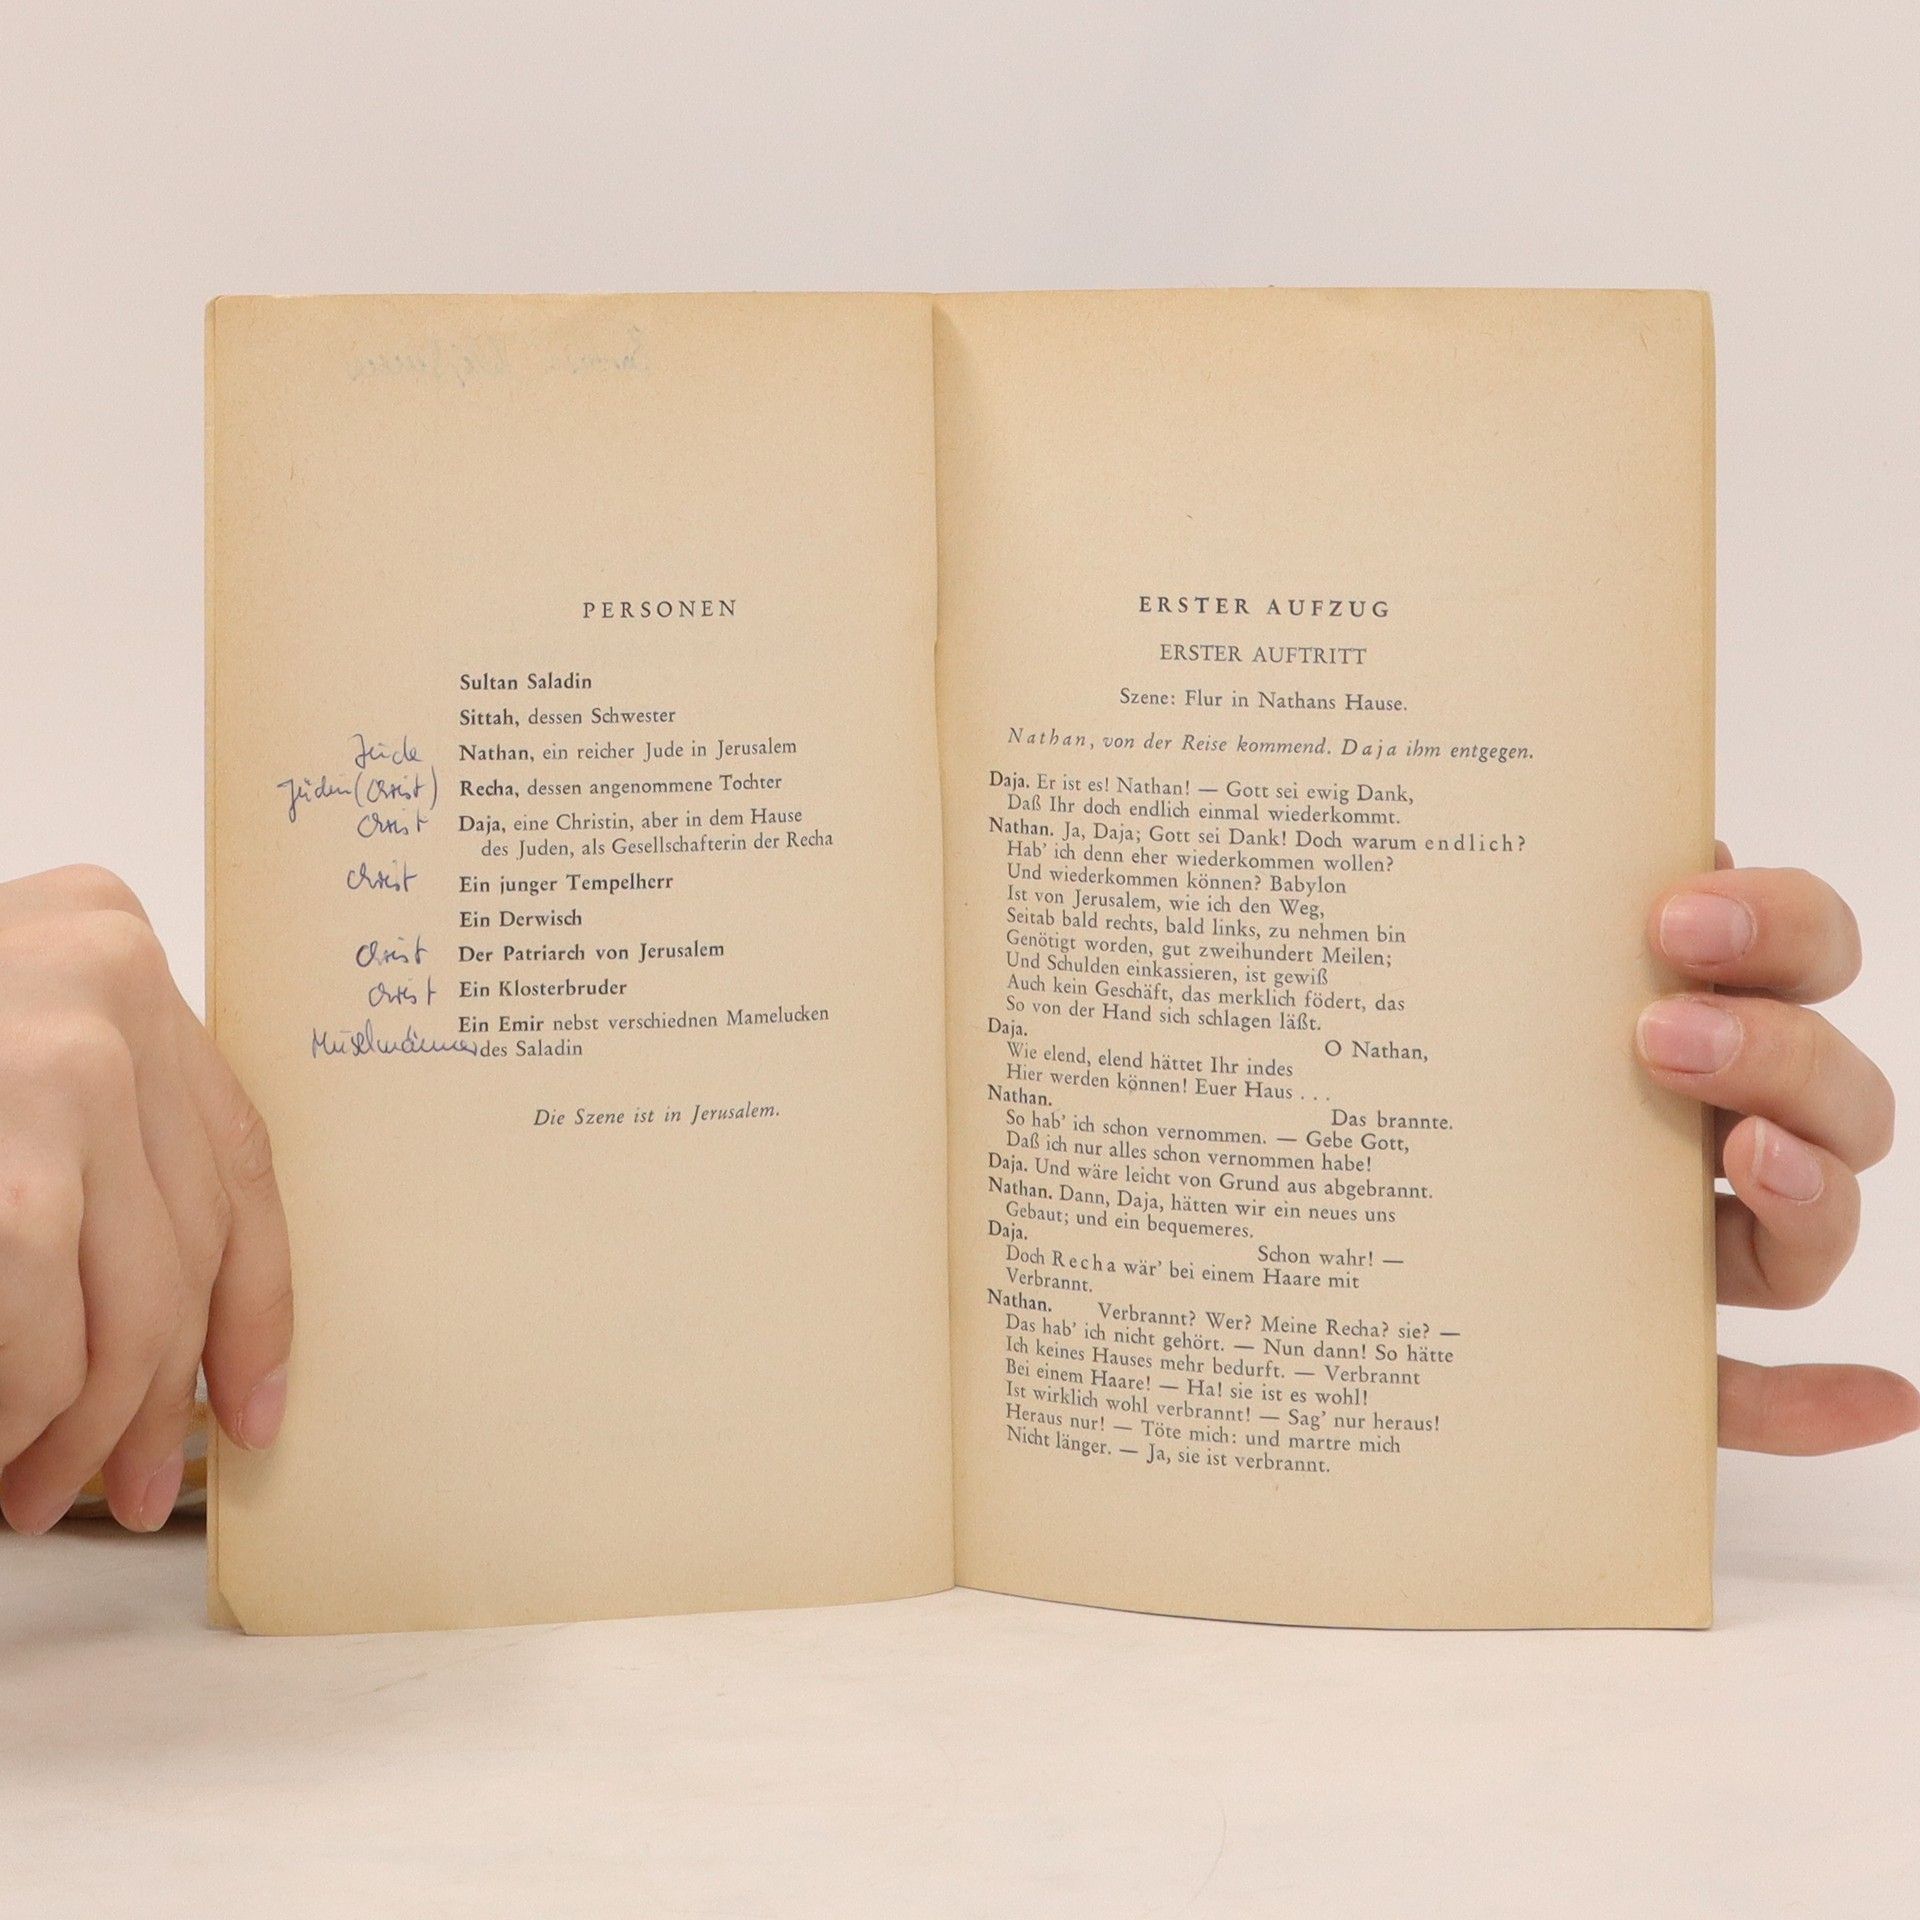 PERSONEN
Sultan Saladin
Sittah, dessen Schwester
Jude Nathan, ein reicher Jude in Jerusalem
Jüdin (Christ) Recha, dessen angenommene Tochter
Christ Daja, eine Christin, aber in dem Hause
des Juden, als Gesellschafterin der Recha
Christ Ein junger Tempelherr
Ein Derwisch
Christ Der Patriarch von Jerusalem
Christ Ein Klosterbruder
Ein Emir nebst verschiednen Mamelucken
Muselmänner des Saladin
Die Szene ist in Jerusalem.
ERSTER AUFZUG
ERSTER AUFTRITT
Szene: Flur in Nathans Hause.
Nathan, von der Reise kommend. Daja ihm entgegen.
Daja. Er ist es! Nathan! — Gott sei ewig Dank,
Daß Ihr doch endlich einmal wiederkommt.
Nathan. Ja, Daja; Gott sei Dank! Doch warum endlich?
Hab' ich denn eher wiederkommen wollen?
Und wiederkommen können? Babylon
Ist von Jerusalem, wie ich den Weg,
Seitab bald rechts, bald links, zu nehmen bin
Genötigt worden, gut zweihundert Meilen;
Und Schulden einkassieren, ist gewiß
Auch kein Geschäft, das merklich födert, das
So von der Hand sich schlagen läßt.
Daja. O Nathan,
Wie elend, elend hättet Ihr indes
Hier werden können! Euer Haus . . .
Nathan. Das brannte.
So hab' ich schon vernommen. — Gebe Gott,
Daß ich nur alles schon vernommen habe!
Daja. Und wäre leicht von Grund aus abgebrannt.
Nathan. Dann, Daja, hätten wir ein neues uns
Gebaut; und ein bequemeres.
Daja. Schon wahr! —
Doch Recha wär' bei einem Haare mit
Verbrannt.
Nathan. Verbrannt? Wer? Meine Recha? sie? —
Das hab' ich nicht gehört. — Nun dann! So hätte
Ich keines Hauses mehr bedurft. — Verbrannt
Bei einem Haare! — Ha! sie ist es wohl!
Ist wirklich wohl verbrannt! — Sag' nur heraus!
Heraus nur! — Töte mich: und martre mich
Nicht länger. — Ja, sie ist verbrannt.